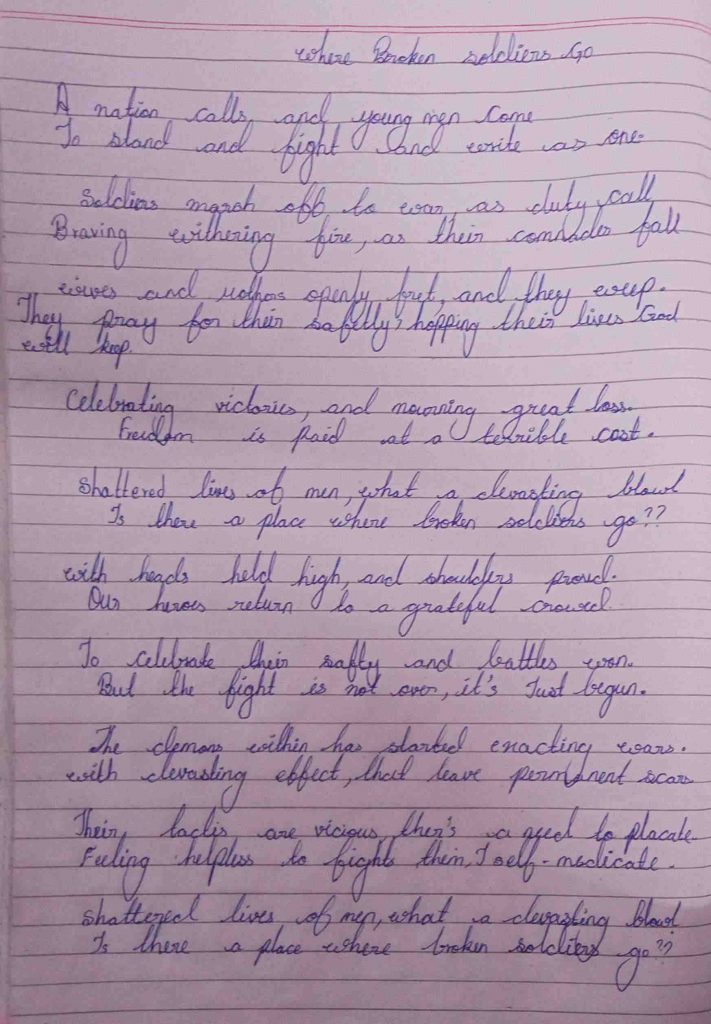 Where Broken soldiers Go
A nation calls, and young men Come
To stand and fight and write as one.
Soldiers marsh off to war, as duty call
Braving withering fire, as their comrades fall
wives and mothers openly fret, and they weep.
They pray for their safetly, hopping their lives God
will keep.
Celebrating victories, and mourning great loss.
Freedom is paid at a terrible cost.
Shattered lives of men, what a devasting blowl
Is there a place where broken soldiers go??
with heads held high, and shoulders proud.
Our heroes return to a grateful crowd.
To celebrate their safty and battles won.
But the fight is not over, it's Just begun.
The demons within has started enacting wars.
with devasting effect, that leave permanent scars
Their tactis are vicious, ther's a need to placate.
Feeling helpless to fights them, I self-medicate.
shattered lives of men, what a devasting blowl
Is there a place where broken soldiers go??